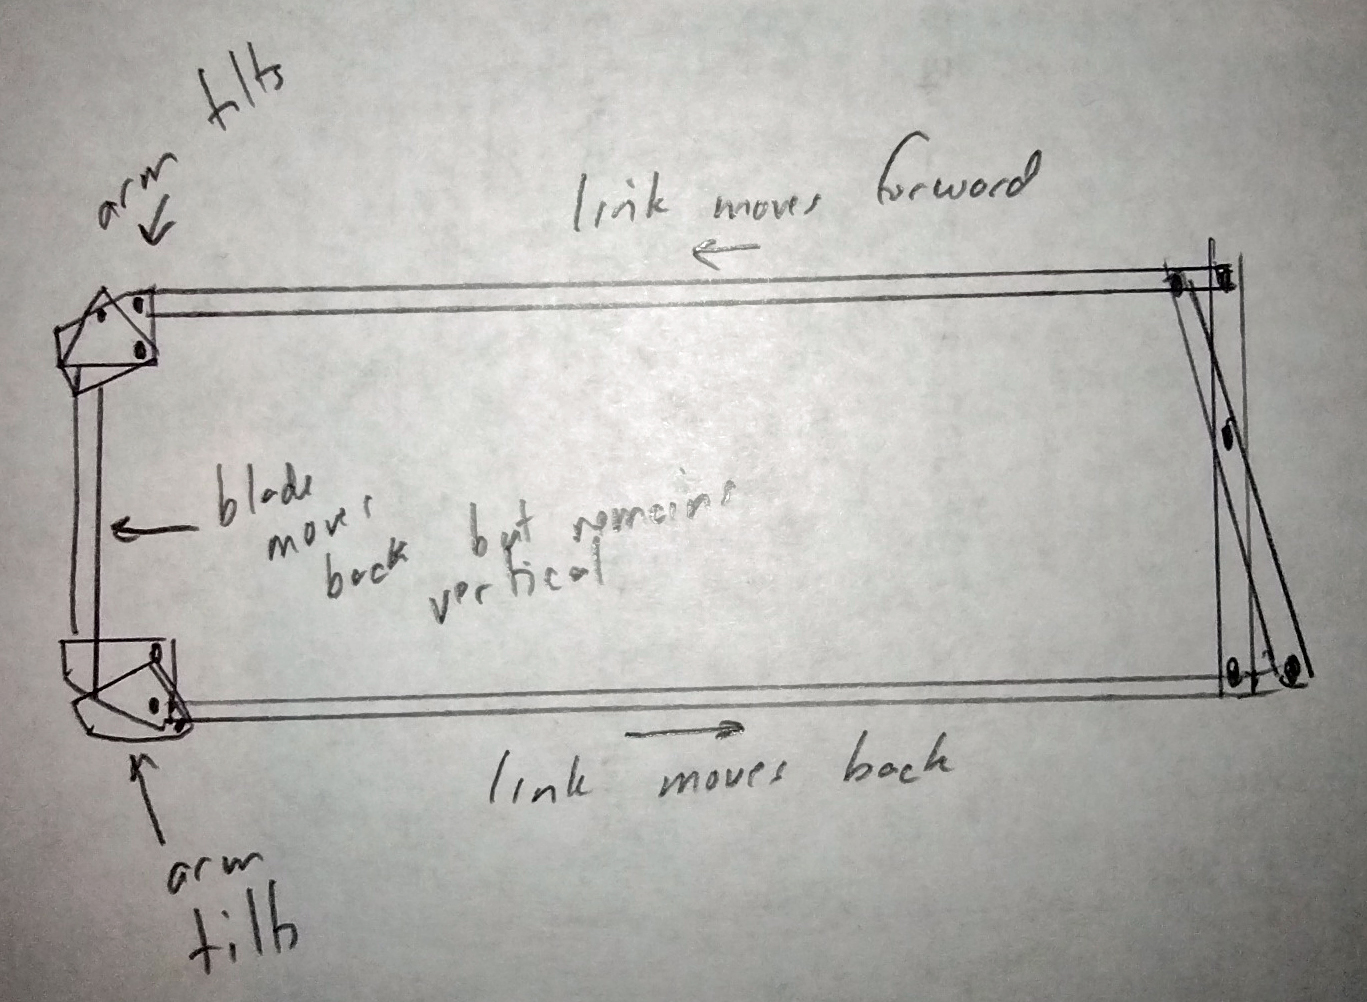 arm tilts
link moves forward
blade
moves
back but remains
vertical
link moves back
arm
tilts